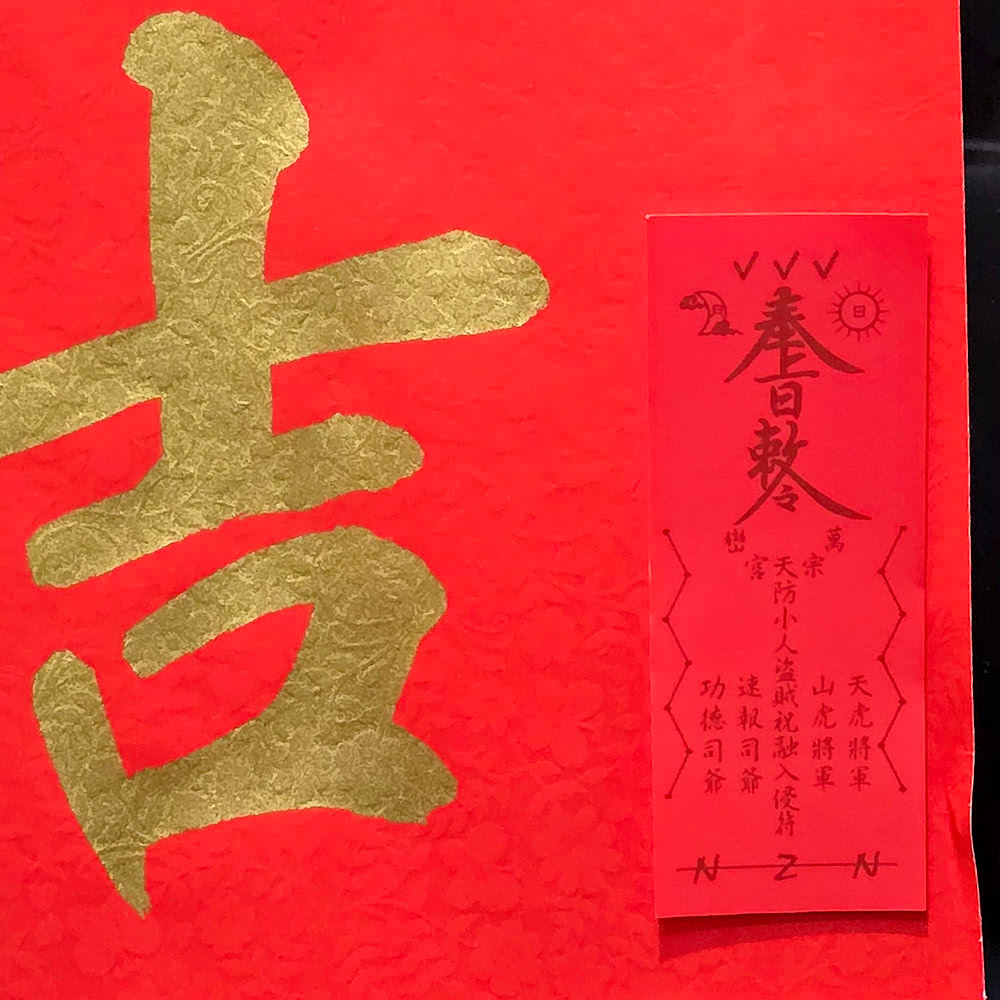 吉
月
日
奉旨敕令
萬宗
巒宮
天虎將軍
山虎將軍
天防小人盜賊祝融入侵符
速報司爺
功德司爺
N Z N